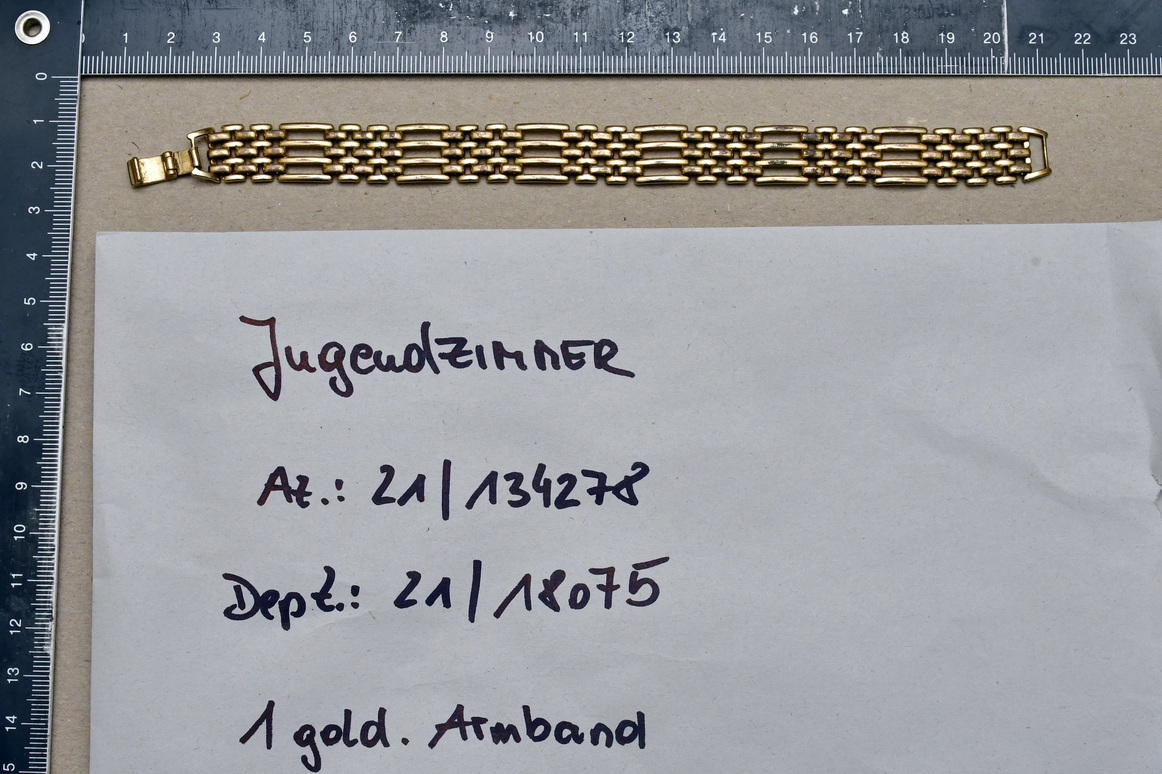 1 2 3 4 5 6 7 8 9 10 11 12 13 14 15 16 17 18 19 20 21 22 23
0
1
2
3
4
5
6
7
8
9
10
11
12
13
14
5
JugendZIMMER
Az.: 21/134278
Dept.: 21/18075
1 gold. Armband